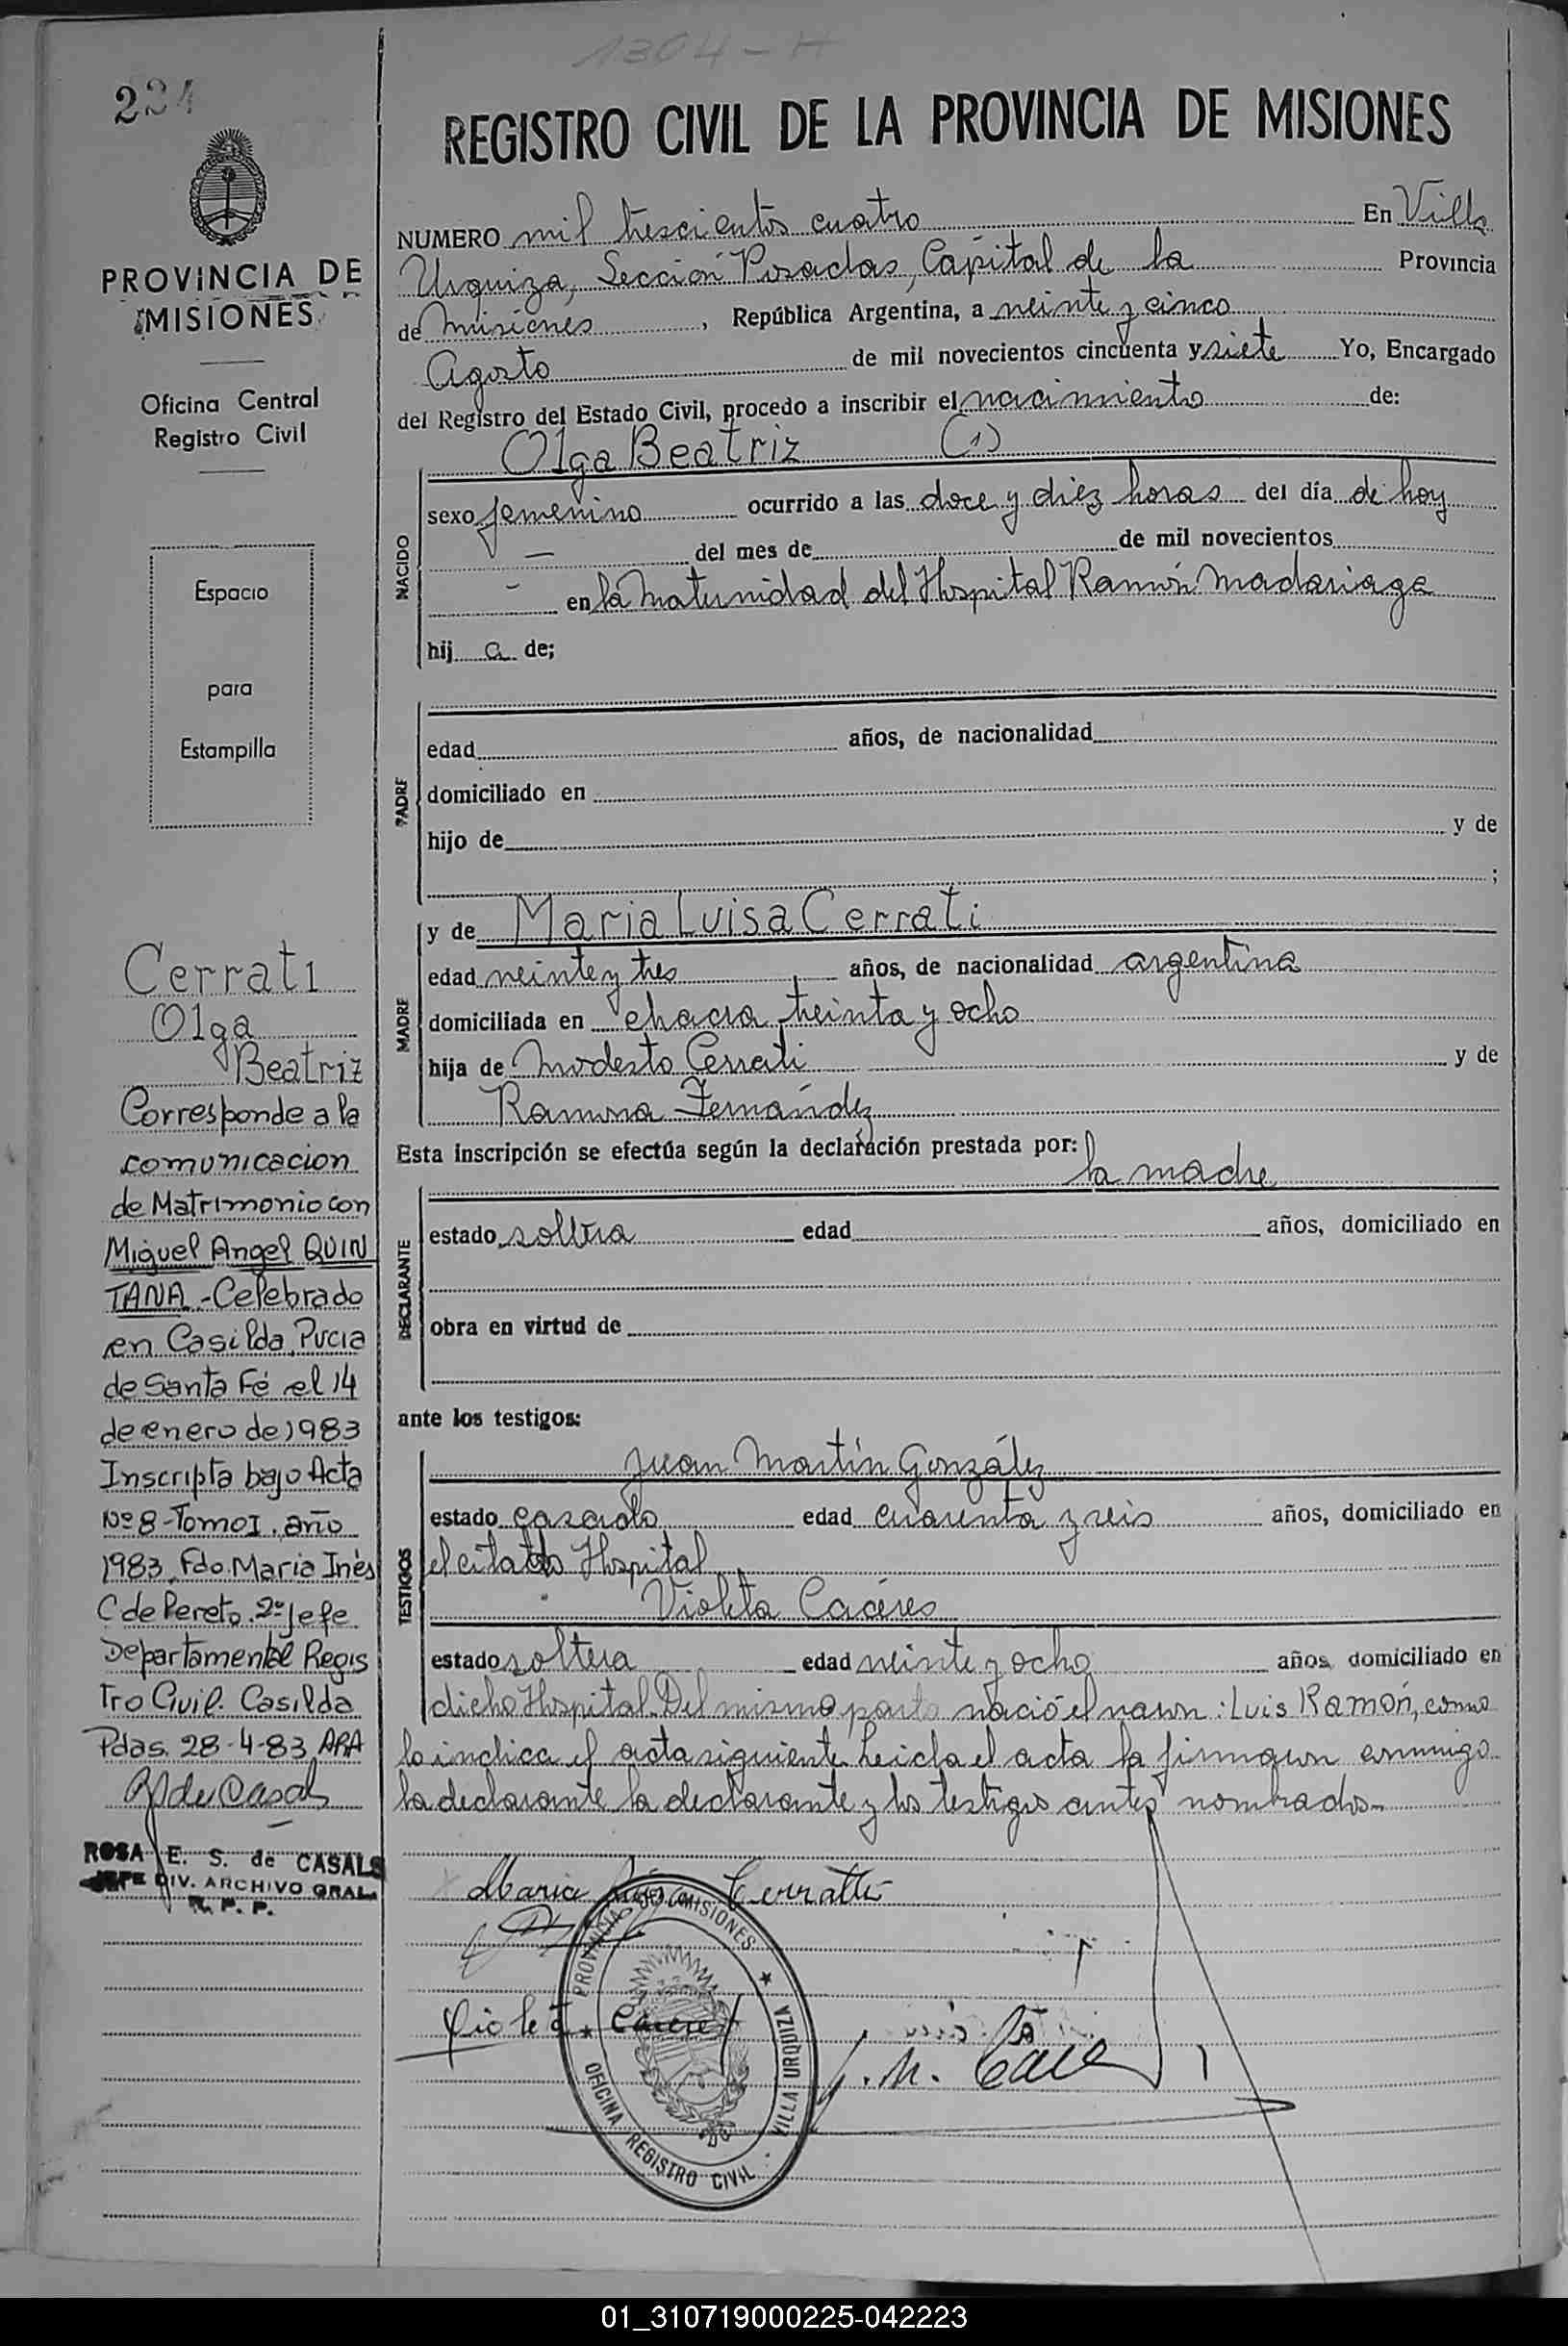 1304-H
234
REGISTRO CIVIL DE LA PROVINCIA DE MISIONES
PROVINCIA DE
MISIONES
Oficina Central
Registro Civil
Espacio
para
Estampilla
Cerrati
Olga
Beatriz
Corresponde a la
comunicacion
de Matrimonio con
Miguel Angel QUIN
TANA - Celebrado
en Casilda Pucia
de Santa Fé el 14
de enero de 1983
Inscripta bajo Acta
Nº 8 - Tomo I. año
1983. Fdo. Maria Inés
C de Pereto. 2º Jefe
Departamental Regis
tro Civil. Casilda
Pdas. 28-4-83 ARA
ROSA E. S. de CASALS
JEFE DIV. ARCHIVO GRAL.
R. P. P.
NUMERO mil trescientos cuatro En Villa
Urquiza, Sección Posadas, Capital de la Provincia
de Misiones, República Argentina, a veinte y cinco
Agosto de mil novecientos cincuenta y siete Yo, Encargado
del Registro del Estado Civil, procedo a inscribir el nacimiento de:
Olga Beatriz (1)
NACIDO
sexo femenino ocurrido a las doce y diez horas del día de hoy
— del mes de de mil novecientos
- en la Maternidad del Hospital Ramón Madariaga
hij a de;
PADRE
edad años, de nacionalidad
domiciliado en
hijo de y de
;
MADRE
y de Maria Luisa Cerrati
edad veinte y tres años, de nacionalidad argentina
domiciliada en chacra treinta y ocho
hija de Modesto Cerrati y de
Ramona Fernández
Esta inscripción se efectúa según la declaración prestada por:
la madre
DECLARANTE
estado soltera edad años, domiciliado en
obra en virtud de
ante los testigos:
TESTIGOS
Juan Martín González
estado casado edad cuarenta y seis años, domiciliado en
el citado Hospital
Violeta Cacéres
estado soltera edad veinte y ocho años domiciliado en
dicho Hospital. Del mismo parto nació el varon: Luis Ramón, como
lo indica el acta siguiente. Leida el acta la firmaron conmigo
la declarante la declarante y los testigos antes nombrados.-
Maria Luisa Cerratti
Violeta Caceres
PROVINCIA DE MISIONES
VILLA URQUIZA
OFICINA REGISTRO CIVIL
01_310719000225-042223